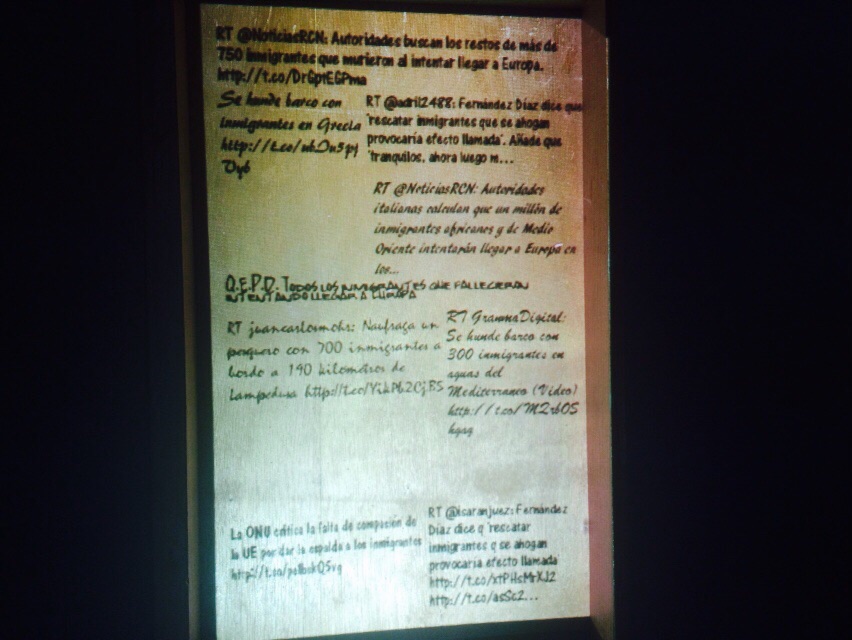 RT @NoticiasRCN: Autoridades buscan los restos de más de
750 inmigrantes que murieron al intentar llegar a Europa.
http://t.co/DrGptEGPma
Se hunde barco con
inmigrantes en Grecia
RT @adril2488: Fernández Díaz dice que
"rescatar inmigrantes que se ahogan
provocaría efecto llamada". Añade que
"tranquilos, ahora luego m...
RT @NoticiasRCN: Autoridades
italianas calculan que un millón de
inmigrantes africanos y de Medio
Oriente intentarán llegar a Europa en
los...
Q.E.P.D. Todos los inmigrantes que fallecieran
intentando llegar a Europa
RT juancarlosmohr: Naufraga un
pesquero con 700 inmigrantes a
bordo a 190 kilómetros de
Lampedusa http://t.co/YikPb2CjBS
RT GranmaDigital:
Se hunde barco con
300 inmigrantes en
aguas del
Mediterraneo (Video)
La ONU critica la falta de compasión de
la UE por dar la espalda a los inmigrantes
RT @isaranjuez: Fernández
Díaz dice q "rescatar
inmigrantes q se ahogan
provocaría efecto llamada"
http://t.co/xtPHsMrXJ2
http://t.co/asSc2...